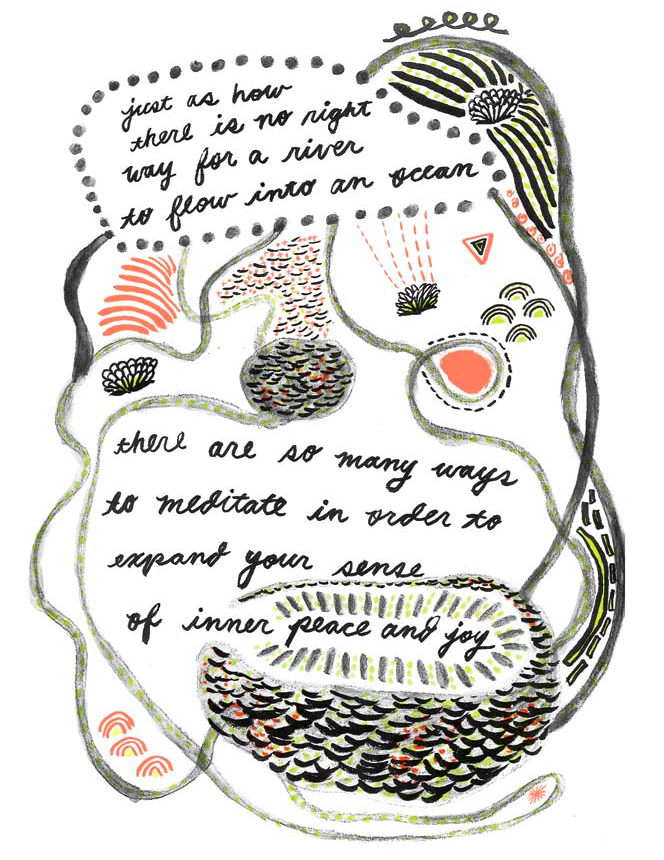 just as how
there is no right
way for a river
to flow into an ocean
there are so many ways
to meditate in order to
expand your sense
of inner peace and joy